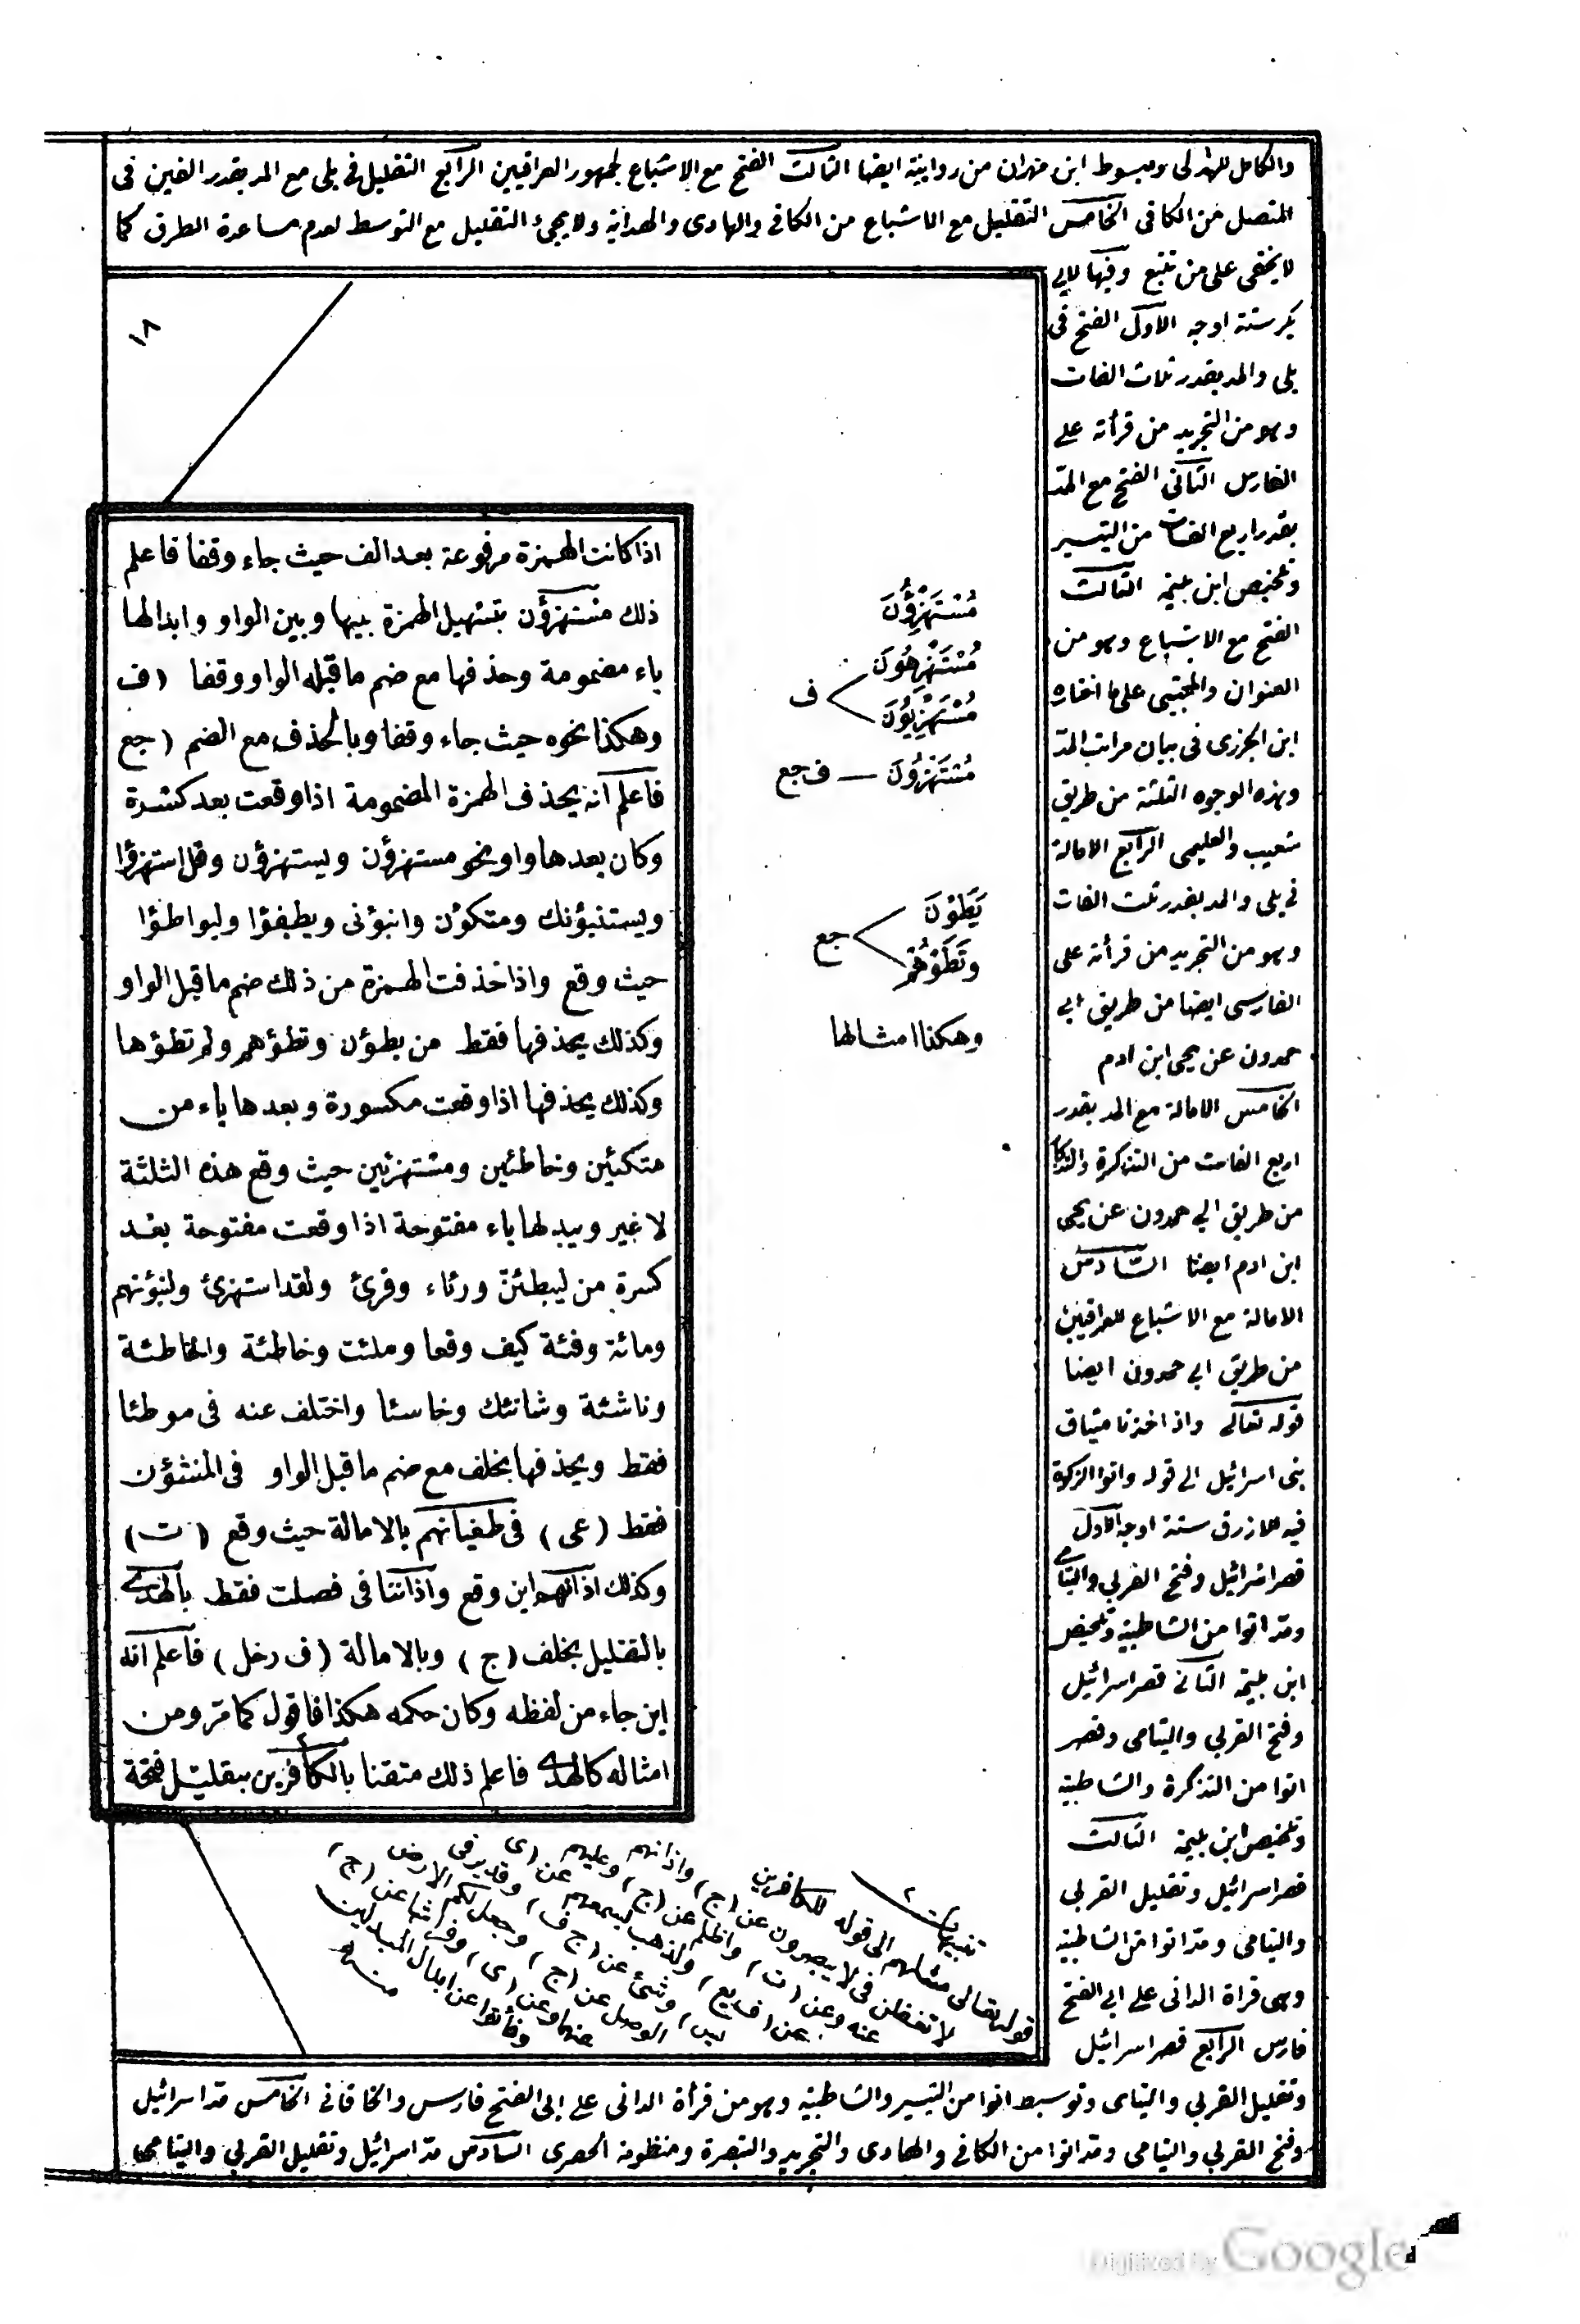 والكامل للهذلى ومبسوط ابن مهران من روايته ايضا الثالث الفتح مع الاشباع لجمهور العراقيين الرابع التقليل فى بلى مع المد بقدر الفين فى
المتصل من الكافى الخامس التقليل مع الاشباع من الكافى والهادى والهداية ولا يجئ التقليل مع التوسط لعدم مساعدة الطرق كما
لا يخفى على من تتبع وفيها لابى
بكر ستة اوجه الاول الفتح فى
بلى والمد بقدر ثلاث الفات
وهو من التجريد من قرأته على
الفارسى الثانى الفتح مع المد
بقدر اربع الفات من التيسير
وتلخيص ابن بليمة الثالث
الفتح مع الاشباع وهو من
العنوان والمجتبى على ما اختاره
ابن الجزرى فى بيان مراتب المد
وهذه الوجوه الثلثة من طريق
شعيب والعليمى الرابع الامالة
فى بلى والمد بقدر ثلث الفات
وهو من التجريد من قرأته على
الفارسى ايضا من طريق ابى
حمدون عن يحيى ابن ادم
الخامس الامالة مع المد بقدر
اربع الفات من التذكرة
من طريق ابى حمدون عن يحيى
ابن ادم ايضا السادس
الامالة مع الاشباع للعراقيين
من طريق ابى حمدون ايضا
قوله تعالى واذ اخذنا ميثاق
بنى اسرائيل الى قوله واتوا الزكوة
فيه للازرق ستة اوجه الاول
قصر اسرائيل وفتح القربى واليتامى
ومد اتوا من الشاطبية وتلخيص
ابن بليمة الثانى قصر اسرائيل
وفتح القربى واليتامى وقصر
اتوا من التذكرة والشاطبية
وتلخيص ابن بليمة الثالث
قصر اسرائيل وتقليل القربى
واليتامى ومد اتوا من الشاطبية
وهى قراة الدانى على ابى الفتح
فارس الرابع قصر اسرائيل
وتقليل القربى واليتامى وتوسيط اتوا من التيسير والشاطبية وهو من قرأة الدانى على ابى الفتح فارس والخاقانى الخامس مد اسرائيل
وفتح القربى واليتامى ومد اتوا من الكافى والهادى والتجريد والتبصرة ومنظومة الحصرى السادس مد اسرائيل وتقليل القربى واليتامى
١٨
اذا كانت الهمزة مرفوعة بعد الف حيث جاء وقفا فاعلم
ذلك مستهزؤن بتسهيل الهمزة بينها وبين الواو وابدالها
ياء مضمومة وحذفها مع ضم ما قبله الواو وقفا (ف
وهكذا نحوه حيث جاء وقفا وبالحذف مع الضم (جع
فاعلم انه يحذف الهمزة المضمومة اذا وقعت بعد كسرة
وكان بعدها واو نحو مستهزؤن ويستهزؤن وقل استهزؤا
ويستنبؤنك ومتكؤن وانبؤنى ويطفؤا وليواطؤا
حيث وقع واذا حذفت الهمزة من ذلك ضم ما قبل الواو
وكذلك يحذفها فقط من يطؤن وتطؤهم ولم تطؤها
وكذلك يحذفها اذا وقعت مكسورة وبعدها ياء من
متكئين وخاطئين ومستهزئين حيث وقع هذه الثلثة
لا غير ويبدلها ياء مفتوحة اذا وقعت مفتوحة بعد
كسرة من ليبطئن ورئاء وقرئ ولقد استهزئ ولنبؤنهم
ومائة وفئة كيف وقعا وملئت وخاطئة والخاطئة
وناشئة وشانئك وخاسئا واختلف عنه فى موطئا
فقط ويحذفها بخلف مع ضم ما قبل الواو فى المنشؤن
فقط (عى) فى طغيانهم بالامالة حيث وقع (ت)
وكذلك اذانهم اين وقع واذاننا فى فصلت فقط بالهدى
بالتقليل بخلف (ج) وبالامالة (ف رخل) فاعلم انه
اين جاء من لفظه وكان حكمه هكذا فاقول كما مر ومن
امثاله كالهدى فاعلم ذلك متقنا بالكافرين بتقليل فتحة
مُسْتَهْزِؤُنَ
مُسْتَهْزِهُونَ
ف
مُسْتَهْزِيُونَ
مُسْتَهْزُونَ — ف جع
يَطَوْنَ
جع
وتَطَوْهُمْ
وهكذا امثالها
تنبيهات
قوله تعالى مثلهم الى قوله للكافرين
Digitized by Google